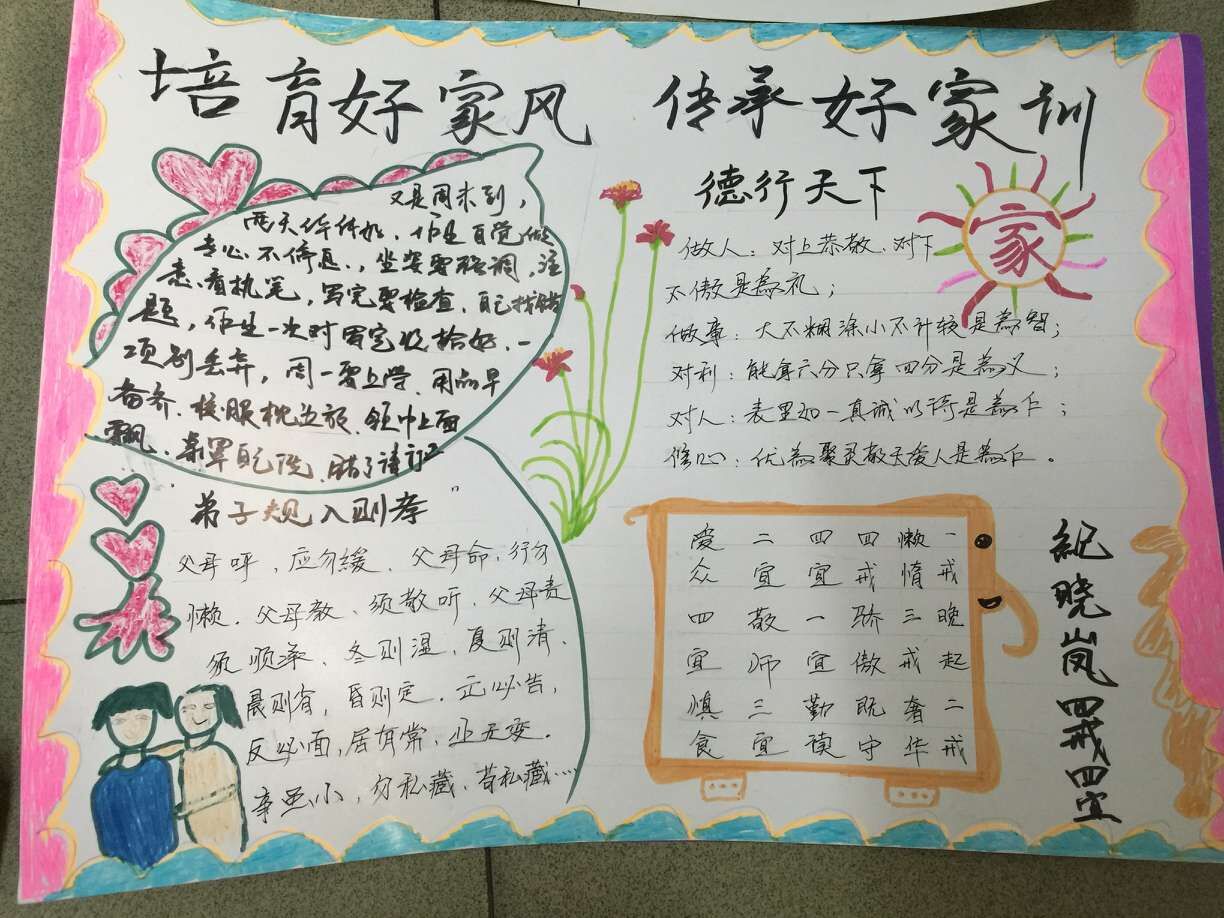 培育好家风 传承好家训
又是周末到，
两天华休如，作生自觉做
专心不停息，坐姿要强调，注
意看执笔，写完要检查，自己找错
题，作生一次对写完收拾好，一
项别丢弃，周一要上学，用品早
备齐，校服枕边放，领巾上面
飘，亲罩自己洗，错了请订正
"弟子规入则孝"
父母呼，应勿缓，父母命，行勿
懒，父母教，须敬听，父母责
须顺承，冬则温，夏则清，
晨则省，昏则定，出必告，
反必面，居有常，业无变。
事虽小，勿私藏，苟私藏……
德行天下
家
做人：对上恭敬、对下
不傲是為礼；
做事：大不糊涂小不计较是為智；
对利：能拿六分只拿四分是為义；
对人：表里如一真诚以待是為仁；
修心：优為聚灵敬天爱人是為仁。
纪晓岚四戒四宜
一戒晚起二戒
懒惰三戒奢华
四戒骄傲既守
四宜一宜勤读
二宜敬师三宜
爱众四宜慎食